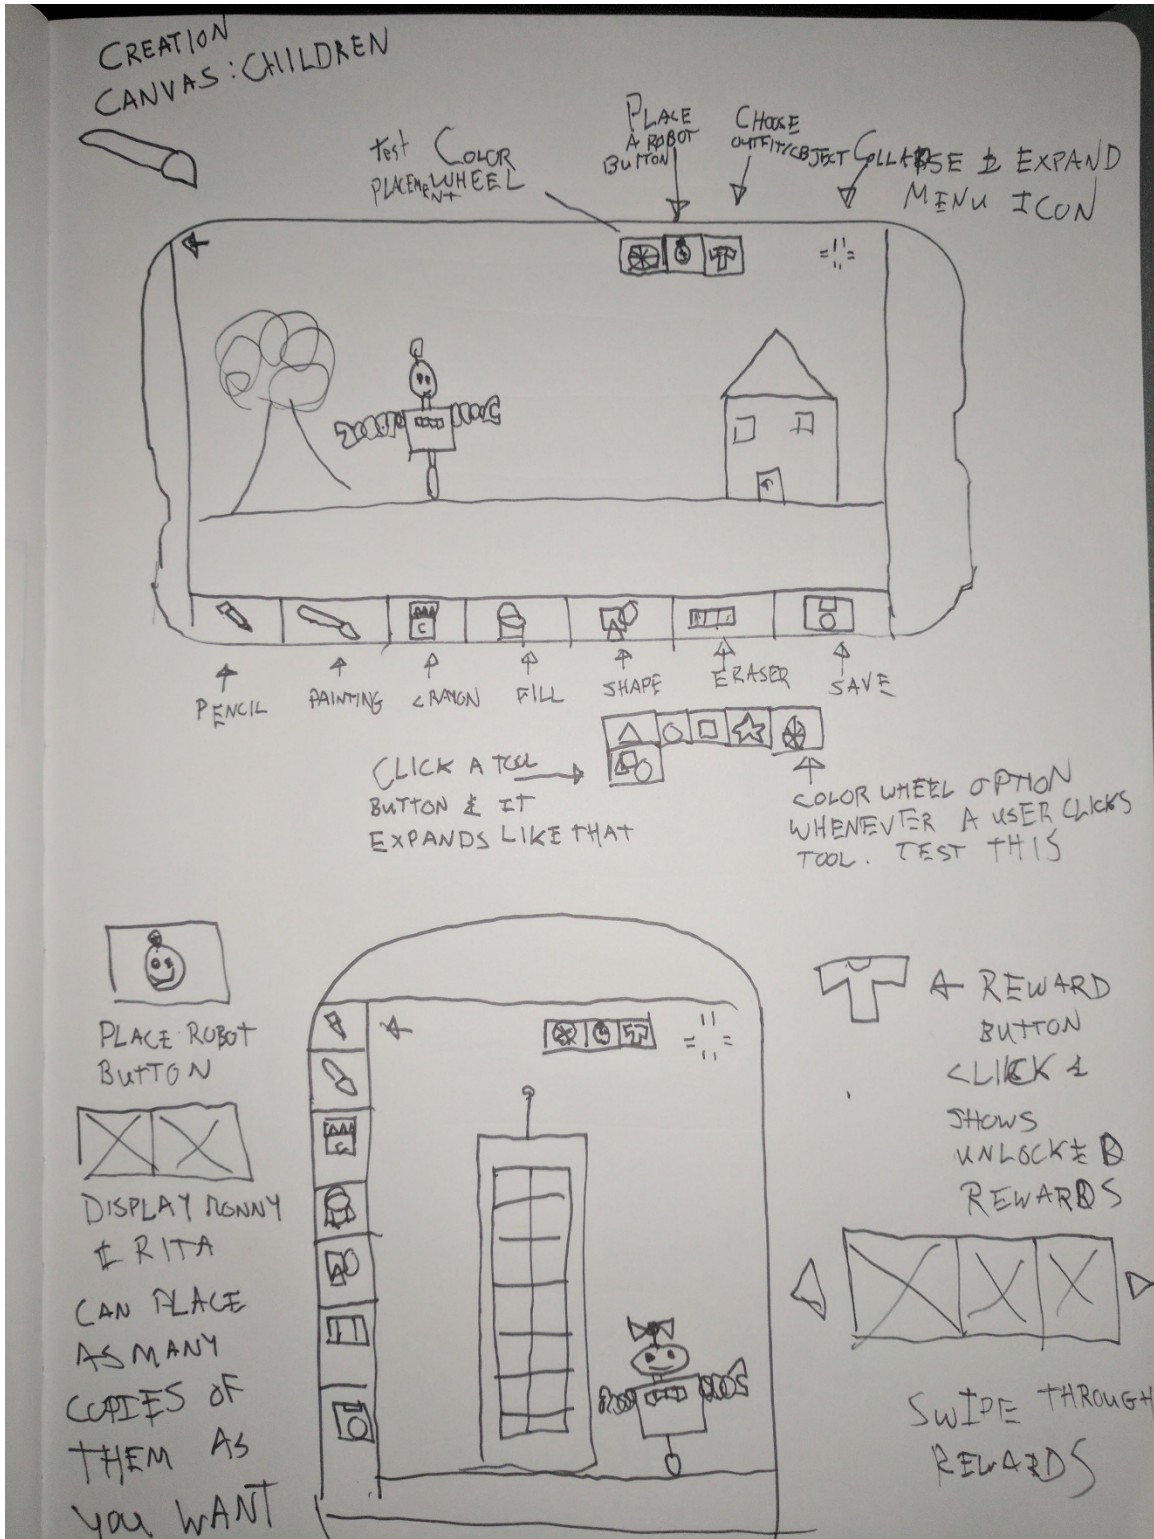 CREATION
CANVAS: CHILDREN
TEST COLOR
PLACEMENT WHEEL
PLACE
A ROBOT
BUTTON
CHOOSE
OUTFIT/OBJECT
COLLAPSE & EXPAND
MENU ICON
PENCIL
PAINTING
C
CRAYON
FILL
SHAPE
ERASER
SAVE
CLICK A TOOL
BUTTON & IT
EXPANDS LIKE THAT
COLOR WHEEL OPTION
WHENEVER A USER CLICKS
TOOL. TEST THIS
PLACE ROBOT
BUTTON
DISPLAY RONNY
& RITA
CAN PLACE
AS MANY
COPIES OF
THEM AS
YOU WANT
C
REWARD
BUTTON
CLICK &
SHOWS
UNLOCKED
REWARDS
SWIPE THROUGH
REWARDS